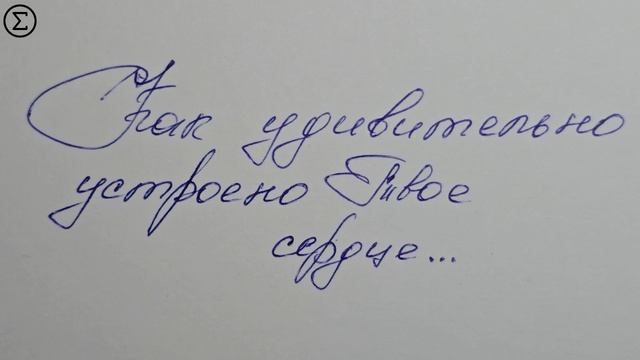 Σ
Как удивительно
устроено Живое
сердце...